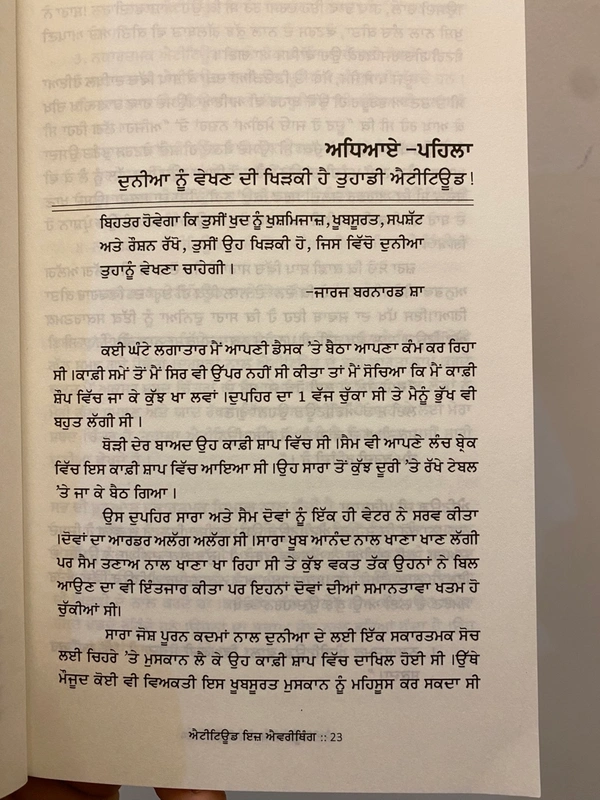 ਅਧਿਆਏ -ਪਹਿਲਾ
ਦੁਨੀਆ ਨੂੰ ਵੇਖਣ ਦੀ ਖਿੜਕੀ ਹੈ ਤੁਹਾਡੀ ਐਟੀਟਿਊਡ!
ਬਿਹਤਰ ਹੋਵੇਗਾ ਕਿ ਤੁਸੀਂ ਖੁਦ ਨੂੰ ਖੁਸ਼ਮਿਜਾਜ਼, ਖ਼ੂਬਸੂਰਤ, ਸਪਸ਼ੱਟ
ਅਤੇ ਰੌਸ਼ਨ ਰੱਖੋ, ਤੁਸੀਂ ਉਹ ਖਿੜਕੀ ਹੋ, ਜਿਸ ਵਿੱਚੋ ਦੁਨੀਆ
ਤੁਹਾਨੂੰ ਵੇਖਣਾ ਚਾਹੇਗੀ।
-ਜਾਰਜ ਬਰਨਾਰਡ ਸ਼ਾ
ਕਈ ਘੰਟੇ ਲਗਾਤਾਰ ਮੈਂ ਆਪਣੀ ਡੈਸਕ 'ਤੇ ਬੈਠਾ ਆਪਣਾ ਕੰਮ ਕਰ ਰਿਹਾ
ਸੀ।ਕਾਫ਼ੀ ਸਮੇਂ ਤੋਂ ਮੈਂ ਸਿਰ ਵੀ ਉੱਪਰ ਨਹੀਂ ਸੀ ਕੀਤਾ ਤਾਂ ਮੈਂ ਸੋਚਿਆ ਕਿ ਮੈਂ ਕਾਫ਼ੀ
ਸ਼ੌਪ ਵਿੱਚ ਜਾ ਕੇ ਕੁੱਝ ਖਾ ਲਵਾਂ।ਦੁਪਹਿਰ ਦਾ 1 ਵੱਜ ਚੁੱਕਾ ਸੀ ਤੇ ਮੈਨੂੰ ਭੁੱਖ ਵੀ
ਬਹੁਤ ਲੱਗੀ ਸੀ।
ਥੋੜੀ ਦੇਰ ਬਾਅਦ ਉਹ ਕਾਫ਼ੀ ਸ਼ਾਪ ਵਿੱਚ ਸੀ।ਸੈਮ ਵੀ ਆਪਣੇ ਲੰਚ ਬ੍ਰੇਕ
ਵਿੱਚ ਇਸ ਕਾਫ਼ੀ ਸ਼ਾਪ ਵਿੱਚ ਆਇਆ ਸੀ।ਉਹ ਸਾਰਾ ਤੋਂ ਕੁੱਝ ਦੂਰੀ 'ਤੇ ਰੱਖੇ ਟੇਬਲ
'ਤੇ ਜਾ ਕੇ ਬੈਠ ਗਿਆ।
ਉਸ ਦੁਪਹਿਰ ਸਾਰਾ ਅਤੇ ਸੈਮ ਦੋਵਾਂ ਨੂੰ ਇੱਕ ਹੀ ਵੇਟਰ ਨੇ ਸਰਵ ਕੀਤਾ
।ਦੋਵਾਂ ਦਾ ਆਰਡਰ ਅਲੱਗ ਅਲੱਗ ਸੀ।ਸਾਰਾ ਖ਼ੂਬ ਆਨੰਦ ਨਾਲ ਖਾਣਾ ਖਾਣ ਲੱਗੀ
ਪਰ ਸੈਮ ਤਣਾਅ ਨਾਲ ਖਾਣਾ ਖਾ ਰਿਹਾ ਸੀ ਤੇ ਕੁੱਝ ਵਕਤ ਤੱਕ ਉਹਨਾਂ ਨੇ ਬਿਲ
ਆਉਣ ਦਾ ਵੀ ਇੰਤਜਾਰ ਕੀਤਾ ਪਰ ਇਹਨਾਂ ਦੋਵਾਂ ਦੀਆਂ ਸਮਾਨਤਾਵਾ ਖਤਮ ਹੋ
ਚੁੱਕੀਆਂ ਸੀ।
ਸਾਰਾ ਜੋਸ਼ ਪੂਰਨ ਕਦਮਾਂ ਨਾਲ ਦੁਨੀਆ ਦੇ ਲਈ ਇੱਕ ਸਕਾਰਤਮਕ ਸੋਚ
ਲਈ ਚਿਹਰੇ 'ਤੇ ਮੁਸਕਾਨ ਲੈ ਕੇ ਉਹ ਕਾਫ਼ੀ ਸ਼ਾਪ ਵਿੱਚ ਦਾਖਿਲ ਹੋਈ ਸੀ।ਉੱਥੇ
ਮੌਜੂਦ ਕੋਈ ਵੀ ਵਿਅਕਤੀ ਇਸ ਖ਼ੂਬਸੂਰਤ ਮੁਸਕਾਨ ਨੂੰ ਮਹਿਸੂਸ ਕਰ ਸਕਦਾ ਸੀ
ਐਟੀਟਿਊਡ ਇਜ਼ ਐਵਰੀਥਿੰਗ :: 23